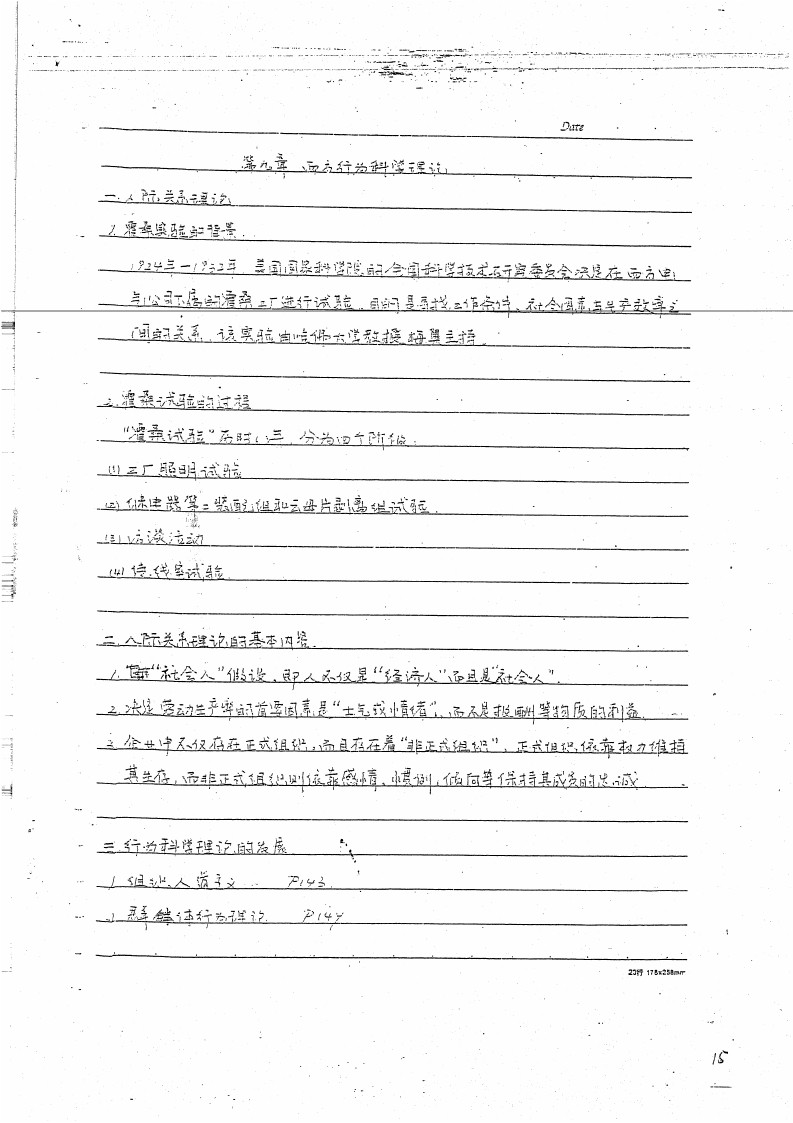 Date
第九章 西方行为科学理论
一.人际关系理论
1.霍桑实验的背景.
1924年-1932年,美国国家科学院的全国科学技术研究委员会决定在西方电
气公司下属的霍桑工厂进行试验,目的是寻找工作条件、社会因素与生产效率之
间的关系,该实验由哈佛大学教授梅奥主持.
2.霍桑试验的过程
"霍桑试验"历时八年,分为四个阶段:
(1)工厂照明试验
(2)继电器等二装配组和云母片剥离组试验.
(3)访谈活动
(4)接线室试验
二.人际关系理论的基本内容.
1."社会人"假设,即人不仅是"经济人"而且是"社会人".
2.决定劳动生产率的首要因素是"士气或情绪",而不是报酬等物质的利益.
3.企业中不仅存在正式组织,而且存在着"非正式组织",正式组织依靠权力维持
其生存,而非正式组织则依靠感情、惯例、倾向等保持其成员的忠诚
三.行为科学理论的发展
1.组织人道主义 P143
2.群体行为理论. P144
23行 176x258mm
15